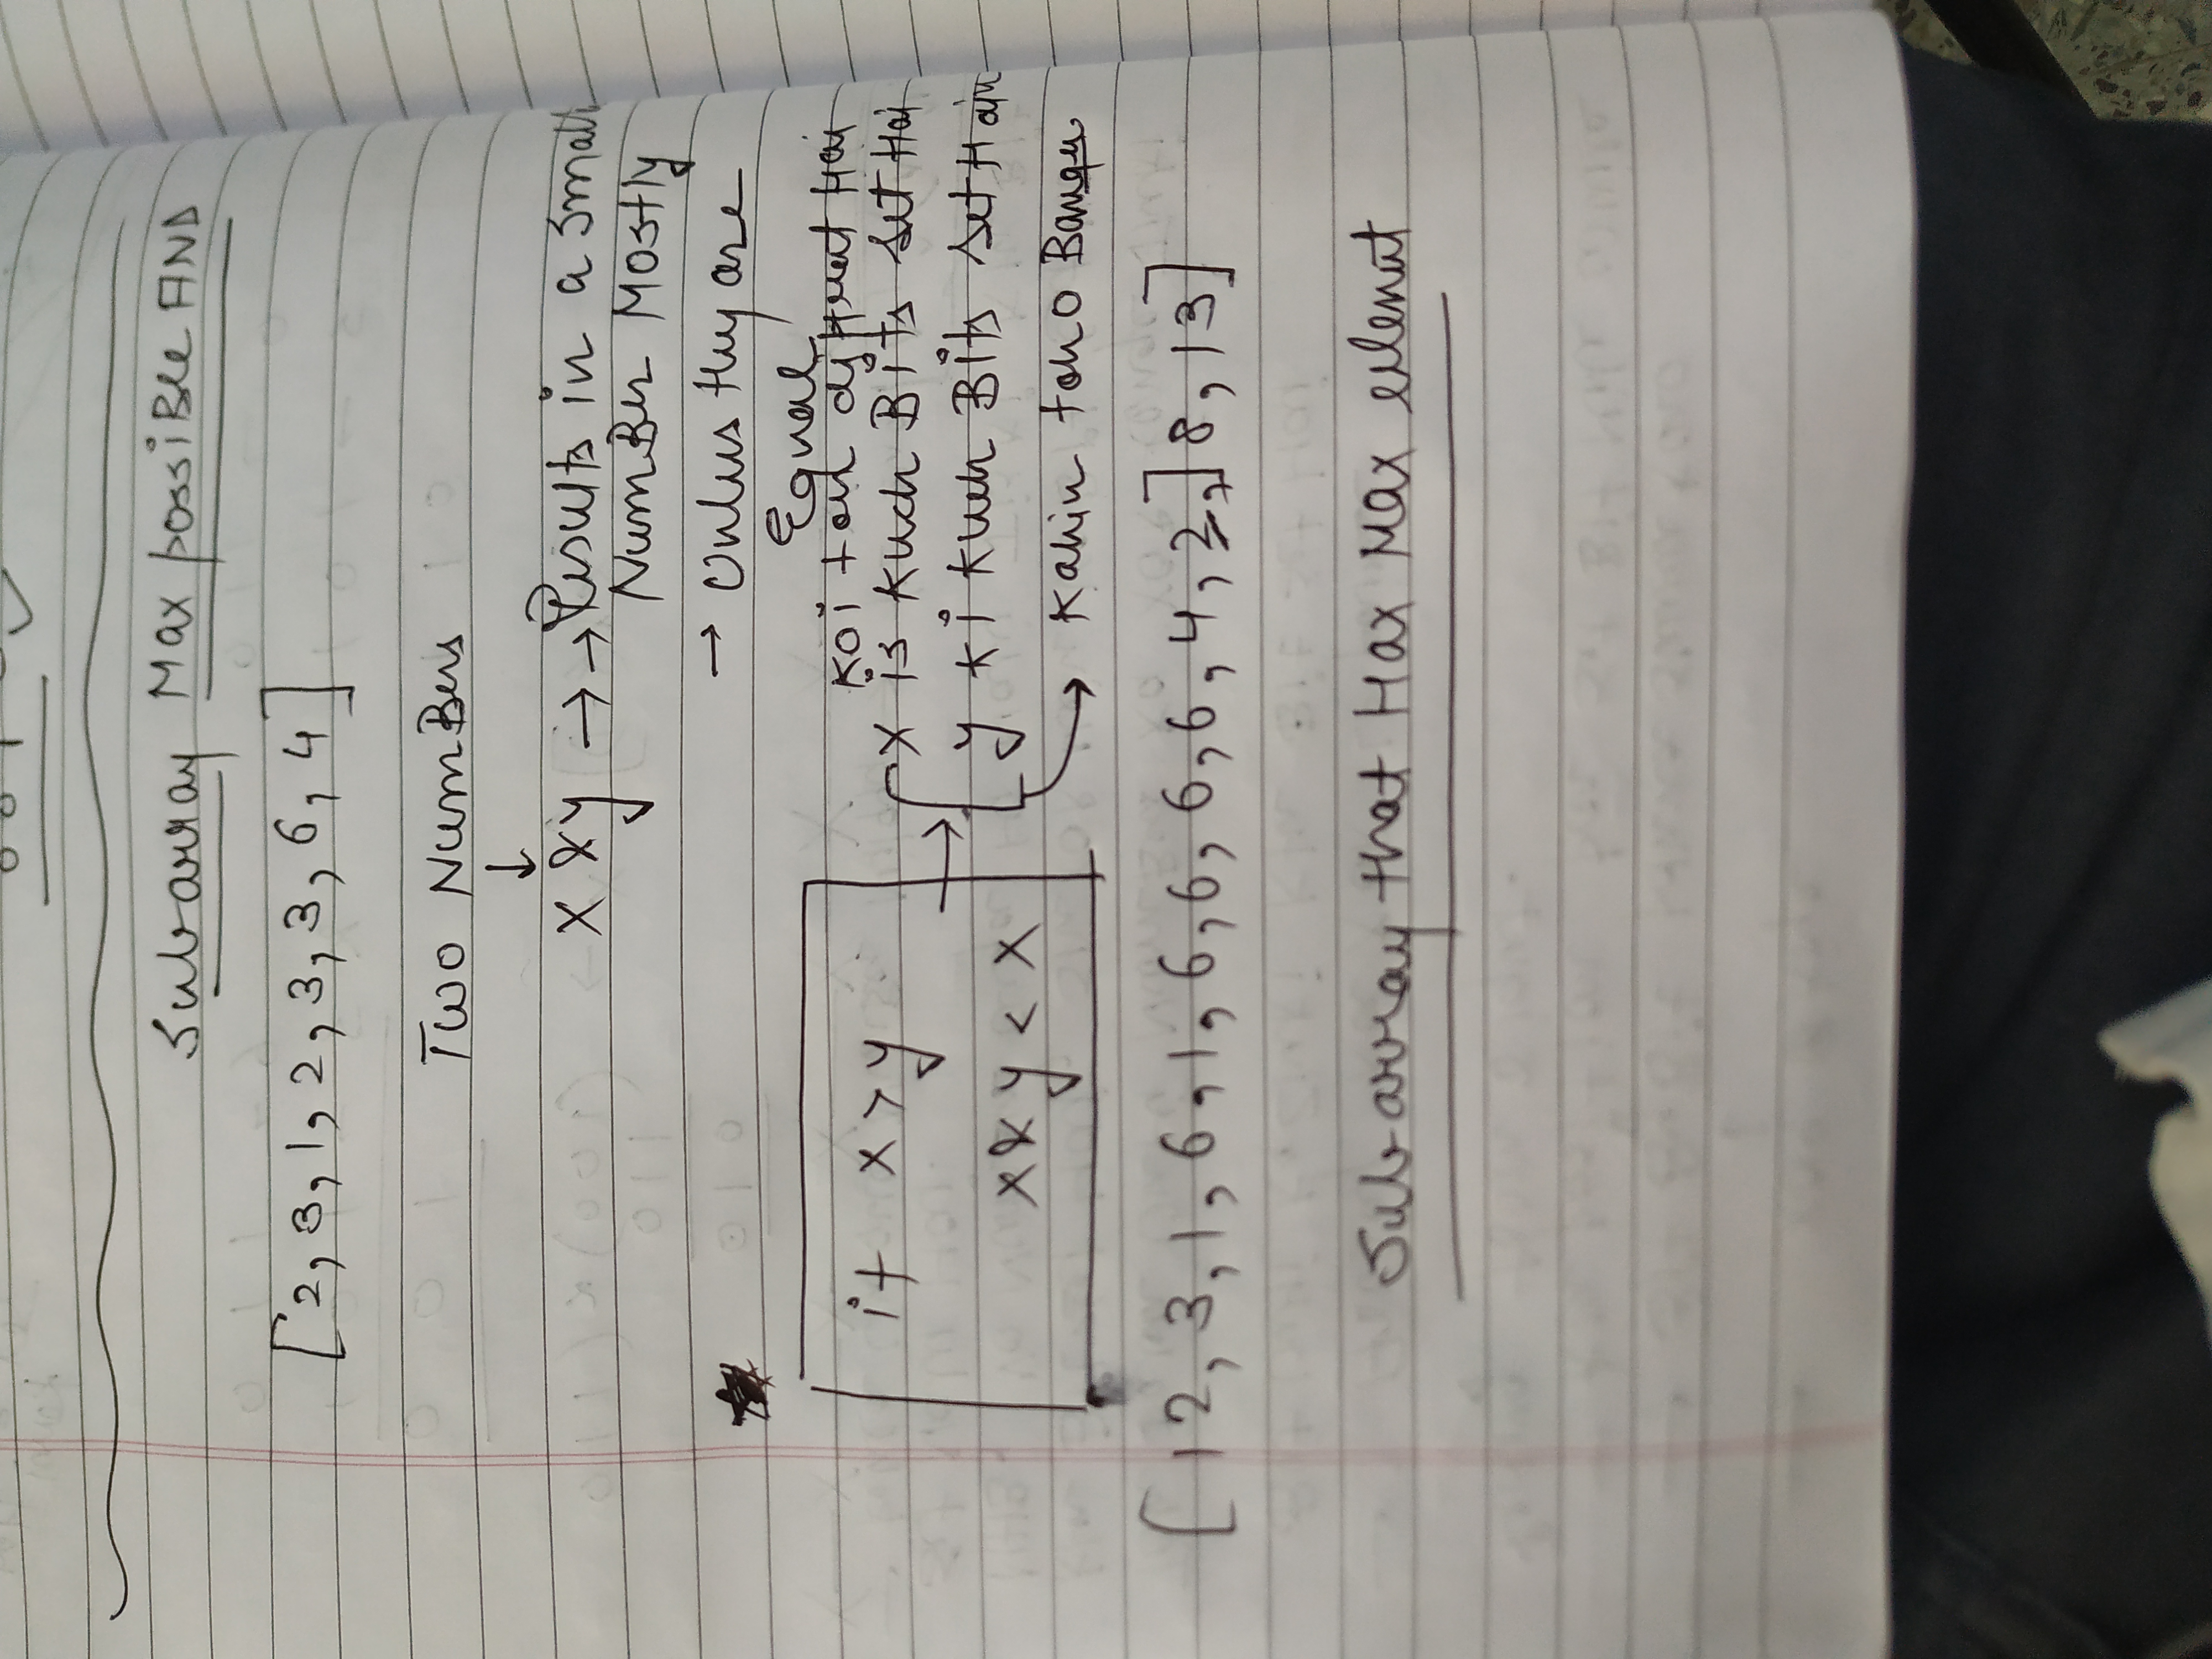 Subarray Max possiBle AND
[2, 3, 1, 2, 3, 3, 6, 4]
Two NumBers
↓
x & y → → Results in a small
NumBer Mostly
→ Unless they are
Equal
Koi toh different Hai
if x > y
x is Kuch Bits set Hai
y ki Kuch Bits set Hain
x & y < x
Kahin toh 0 Bangu
[12, 3, 1, 6, 1, 6, 6, 6, 6, 4, 2,] 8, 13]
Subarray that Hax Max